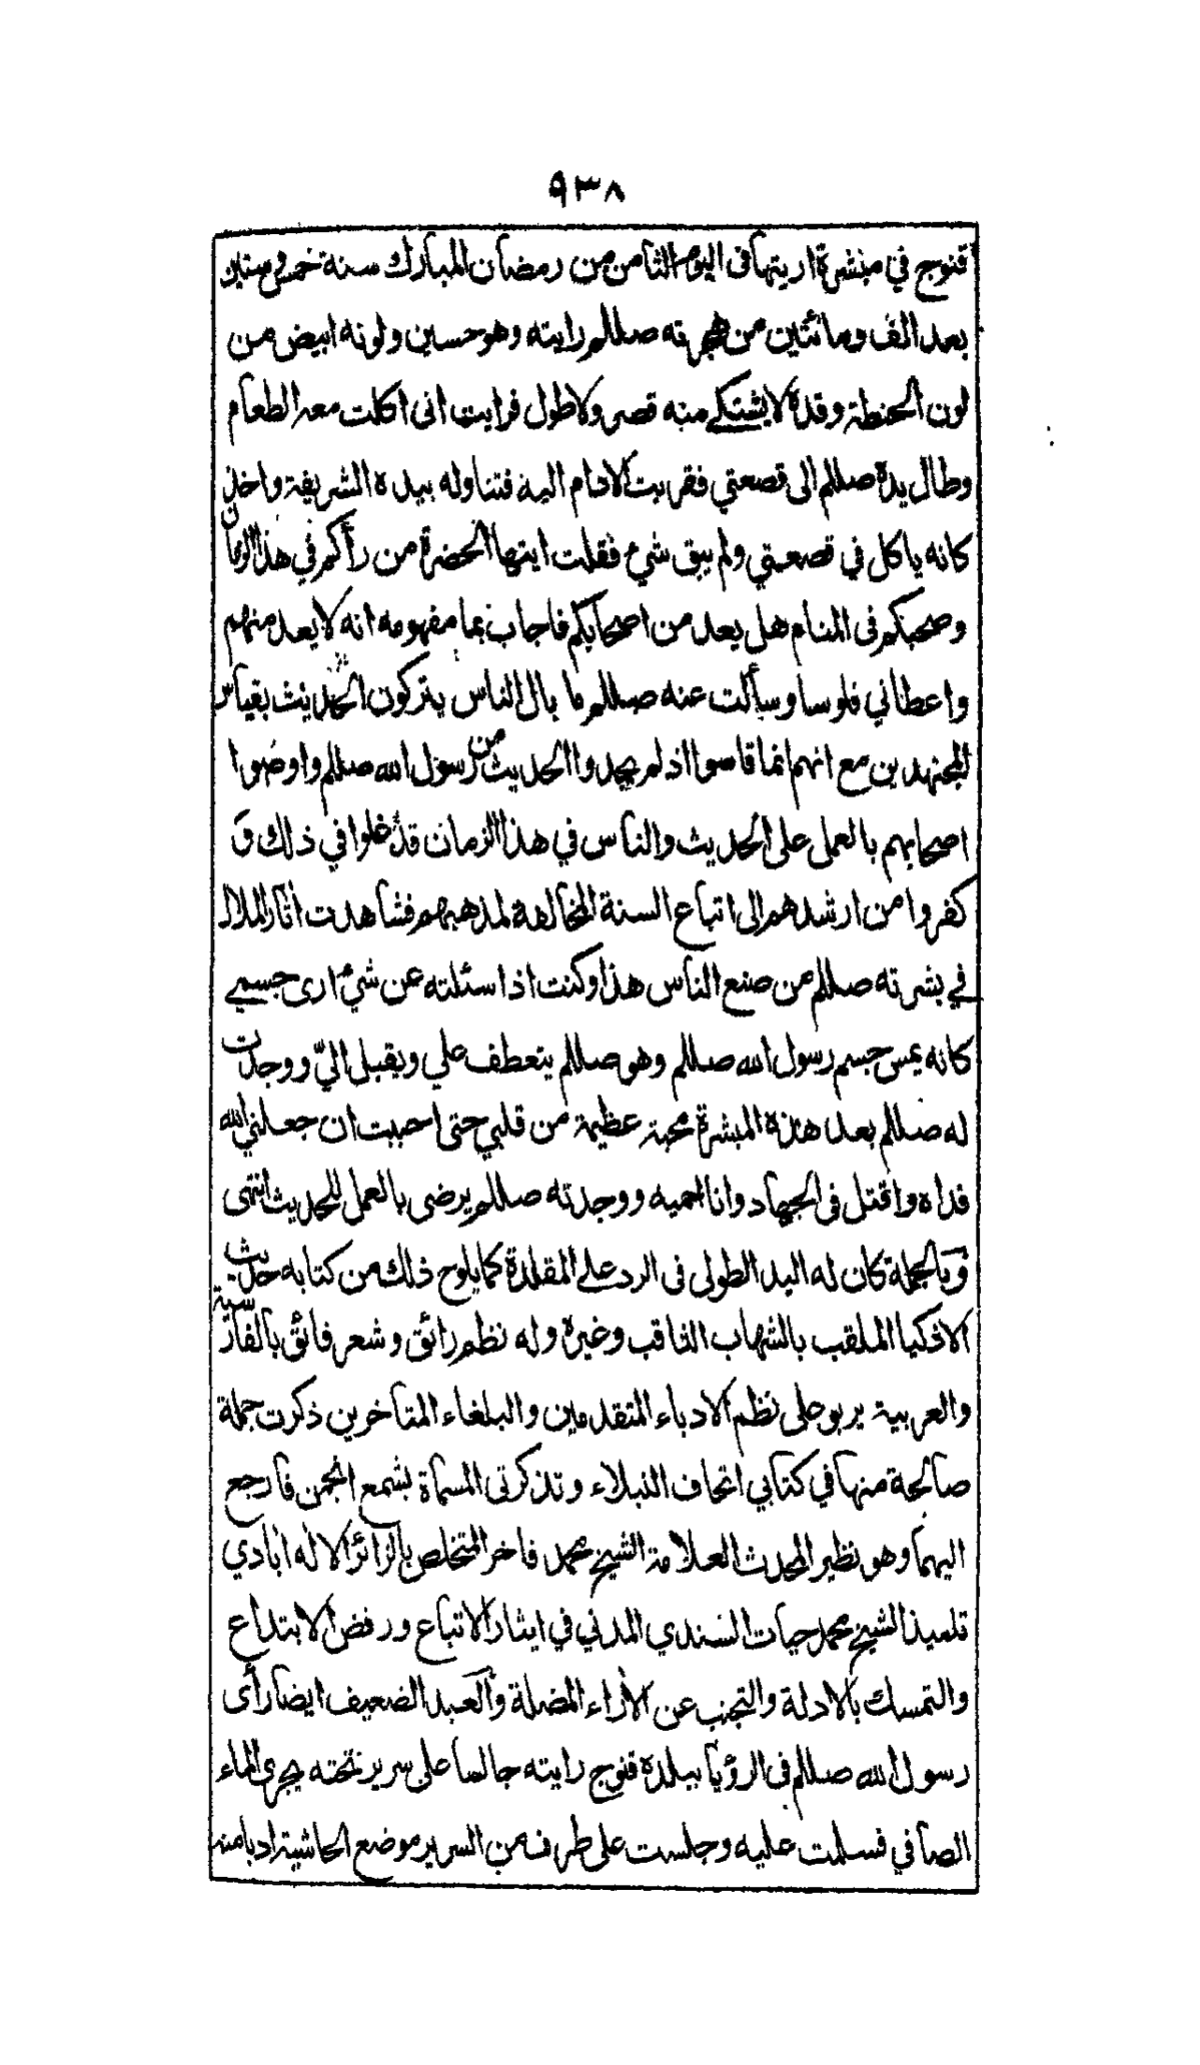 ٩٣٨
قنوج في مبشرة اريتها فى اليوم الثامن من رمضان المبارك سنة خمس وستين
بعد الف ومائتين من هجرته صللم رايته وهو حسين ولونه ابيض من
لون الحنطة وقده لا يشتكے منه قصر ولا طول فرايت انى اكلت معه الطعام
وطال يده صللم الى قصعتي فقربت الادام اليه فتناوله بيده الشريفة واخذ
كانه ياكل في قصعتي ولم يبق شيء فقلت ايتها الحضرة من رأكم في هذا الزمان
وصحبكم فى المنام هل يعد من اصحابكم فاجاب بما مفهومه انه لا يعد منهم
واعطاني فلوسا وسألت عنه صللم ما بال الناس يتركون الحديث بقياس
المجتهدين مع انهم انما قاسوا اذ لم يجدوا الحديث من رسول الله صللم واوصوا
اصحابهم بالعمل على الحديث والناس في هذا الزمان قد غلوا في ذلك و
كفروا من ارشدهم الى اتباع السنة المخالفة لمذهبهم فشاهدت اثار الملال
في بشرته صللم من صنع الناس هذا وكنت اذا سئلته عن شيء ارى جسمي
كانه يمس جسم رسول الله صللم وهو صللم يتعطف علي ويقبل اليّ ووجدت
له صللم بعد هذه المبشرة محبة عظيمة من قلبي حتى احببت ان جعلني الله
فداه واقتل فى الجهاد وانا احميه ووجدته صللم يرضى بالعمل للحديث انتهى
وبالجملة كان له اليد الطولى فى الرد على المقلدة كما يلوح ذلك من كتابه حديث
الاذكيا الملقب بالشهاب الثاقب وغيره وله نظم رائق وشعر فائق بالفارسية
والعربية يربو على نظم الادباء المتقدمين والبلغاء المتاخرين ذكرت جملة
صالحة منها في كتابي اتحاف النبلاء وتذكرتى المسماة بشمع انجمن فارجع
اليهما وهو نظير المحدث العلامة الشيخ محمد فاخر المتخلص بالزائر الاله ابادي
تلميذ الشيخ محمد حيات السندي المدني في ايثار الاتباع ورفض الابتداع
والتمسك بالادلة والتجنب عن الاراء المضلة والعبد الضعيف ايضا رأى
رسول الله صللم فى الرؤيا ببلدة قنوج رايته جالسا على سرير تحته يجرى الماء
الصافي فسلمت عليه وجلست على طرف من السرير موضع الحاشية ادبا منه